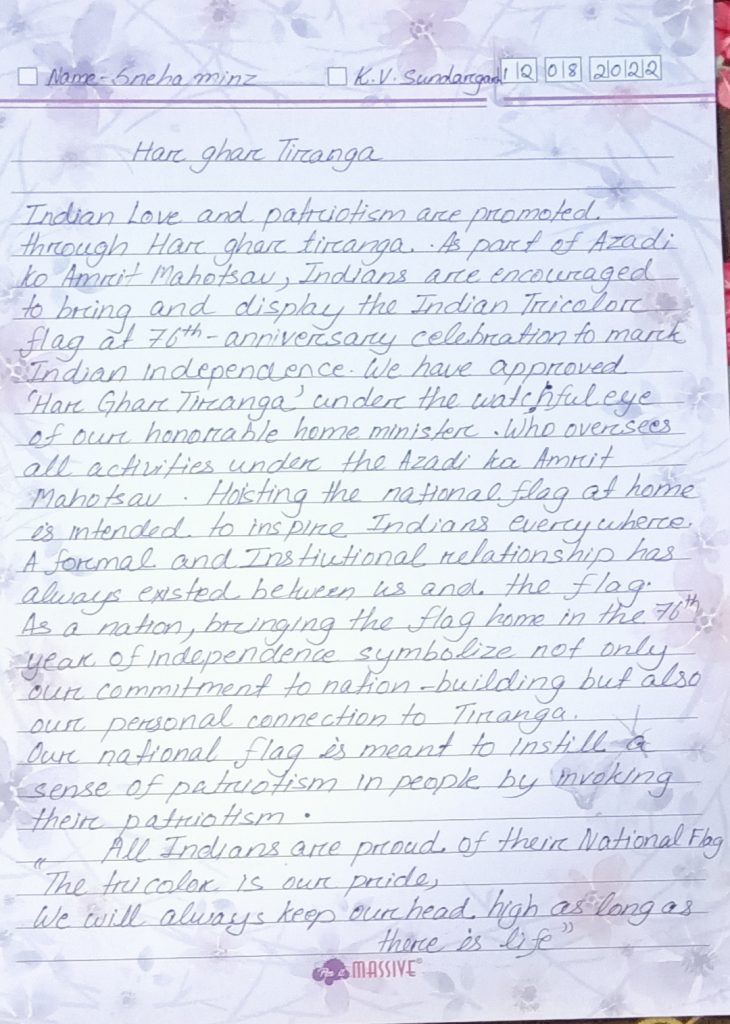 Name - Sneha minz K.V. Sundargarh 12 08 2022
Har ghar Tiranga
Indian Love and patriotism are promoted.
through Har ghar tiranga. As part of Azadi
ko Amrit Mahotsav, Indians are encouraged
to bring and display the Indian Tricolor
flag at 76th - anniversary celebration to mark
Indian independence. We have approved
'Har Ghar Tiranga' under the watchful eye
of our honorrable home minister. Who oversees
all activities under the Azadi ka Amrit
Mahotsav. Hoisting the national flag at home
is intended to inspire Indians everywhere.
A formal and Instiutional relationship has
always existed between us and the flag.
As a nation, bringing the flag home in the 76th
year of independence symbolize not only
our commitment to nation-building but also
our personal connection to Tiranga.
Our national flag is meant to instill a
sense of patriotism in people by invoking
their patriotism.
All Indians are proud of their National Flag
"The tricolor is our pride,
We will always keep our head high as long as
there is life"
MASSIVE